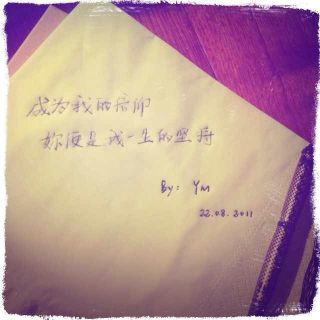 成为我的信仰
妳便是我一生的坚持
By: YM
22.08.2011